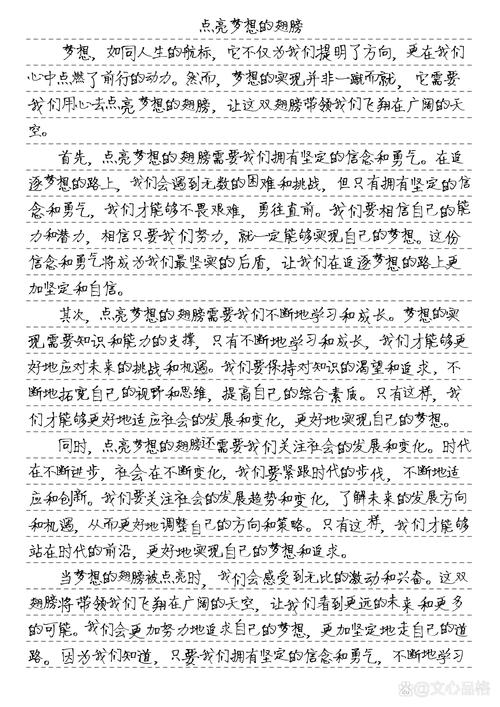 点亮梦想的翅膀
梦想，如同人生的航标，它不仅为我们提明了方向，更在我们
心中点燃了前行的动力。然而，梦想的实现并非一蹴而就，它需要
我们用心去点亮梦想的翅膀，让这双翅膀带领我们飞翔在广阔的天
空。
首先，点亮梦想的翅膀需要我们拥有坚定的信念和勇气。在追
逐梦想的路上，我们会遇到无数的困难和挑战，但只有拥有坚定的信
念和勇气，我们才能够不畏艰难，勇往直前。我们要相信自己的能
力和潜力，相信只要我们努力，就一定能够实现自己的梦想。这份
信念和勇气将成为我们最坚实的后盾，让我们在追逐梦想的路上更
加坚定和自信。
其次，点亮梦想的翅膀需要我们不断地学习和成长。梦想的实
现需要知识和能力的支撑，只有不断地学习和成长，我们才能够更
好地应对未来的挑战和机遇。我们要保持对知识的渴望和追求，不
断地拓宽自己的视野和思维，提高自己的综合素质。只有这样，我
们才能够更好地适应社会的发展和变化，更好地实现自己的梦想。
同时，点亮梦想的翅膀还需要我们关注社会的发展和变化。时代
在不断进步，社会在不断变化，我们要紧跟时代的步伐，不断地适
应和创新。我们要关注社会的发展趋势和变化，了解未来的发展方向
和机遇，从而更好地调整自己的方向和策略。只有这样，我们才能够
站在时代的前沿，更好地实现自己的梦想和追求。
当梦想的翅膀被点亮时，我们会感受到无比的激动和兴奋。这双
翅膀将带领我们飞翔在广阔的天空，让我们看到更远的未来和更多
的可能。我们会更加努力地追求自己的梦想，更加坚定地走自己的道
路。因为我们知道，只要我们拥有坚定的信念和勇气，不断地学习
@文心品格